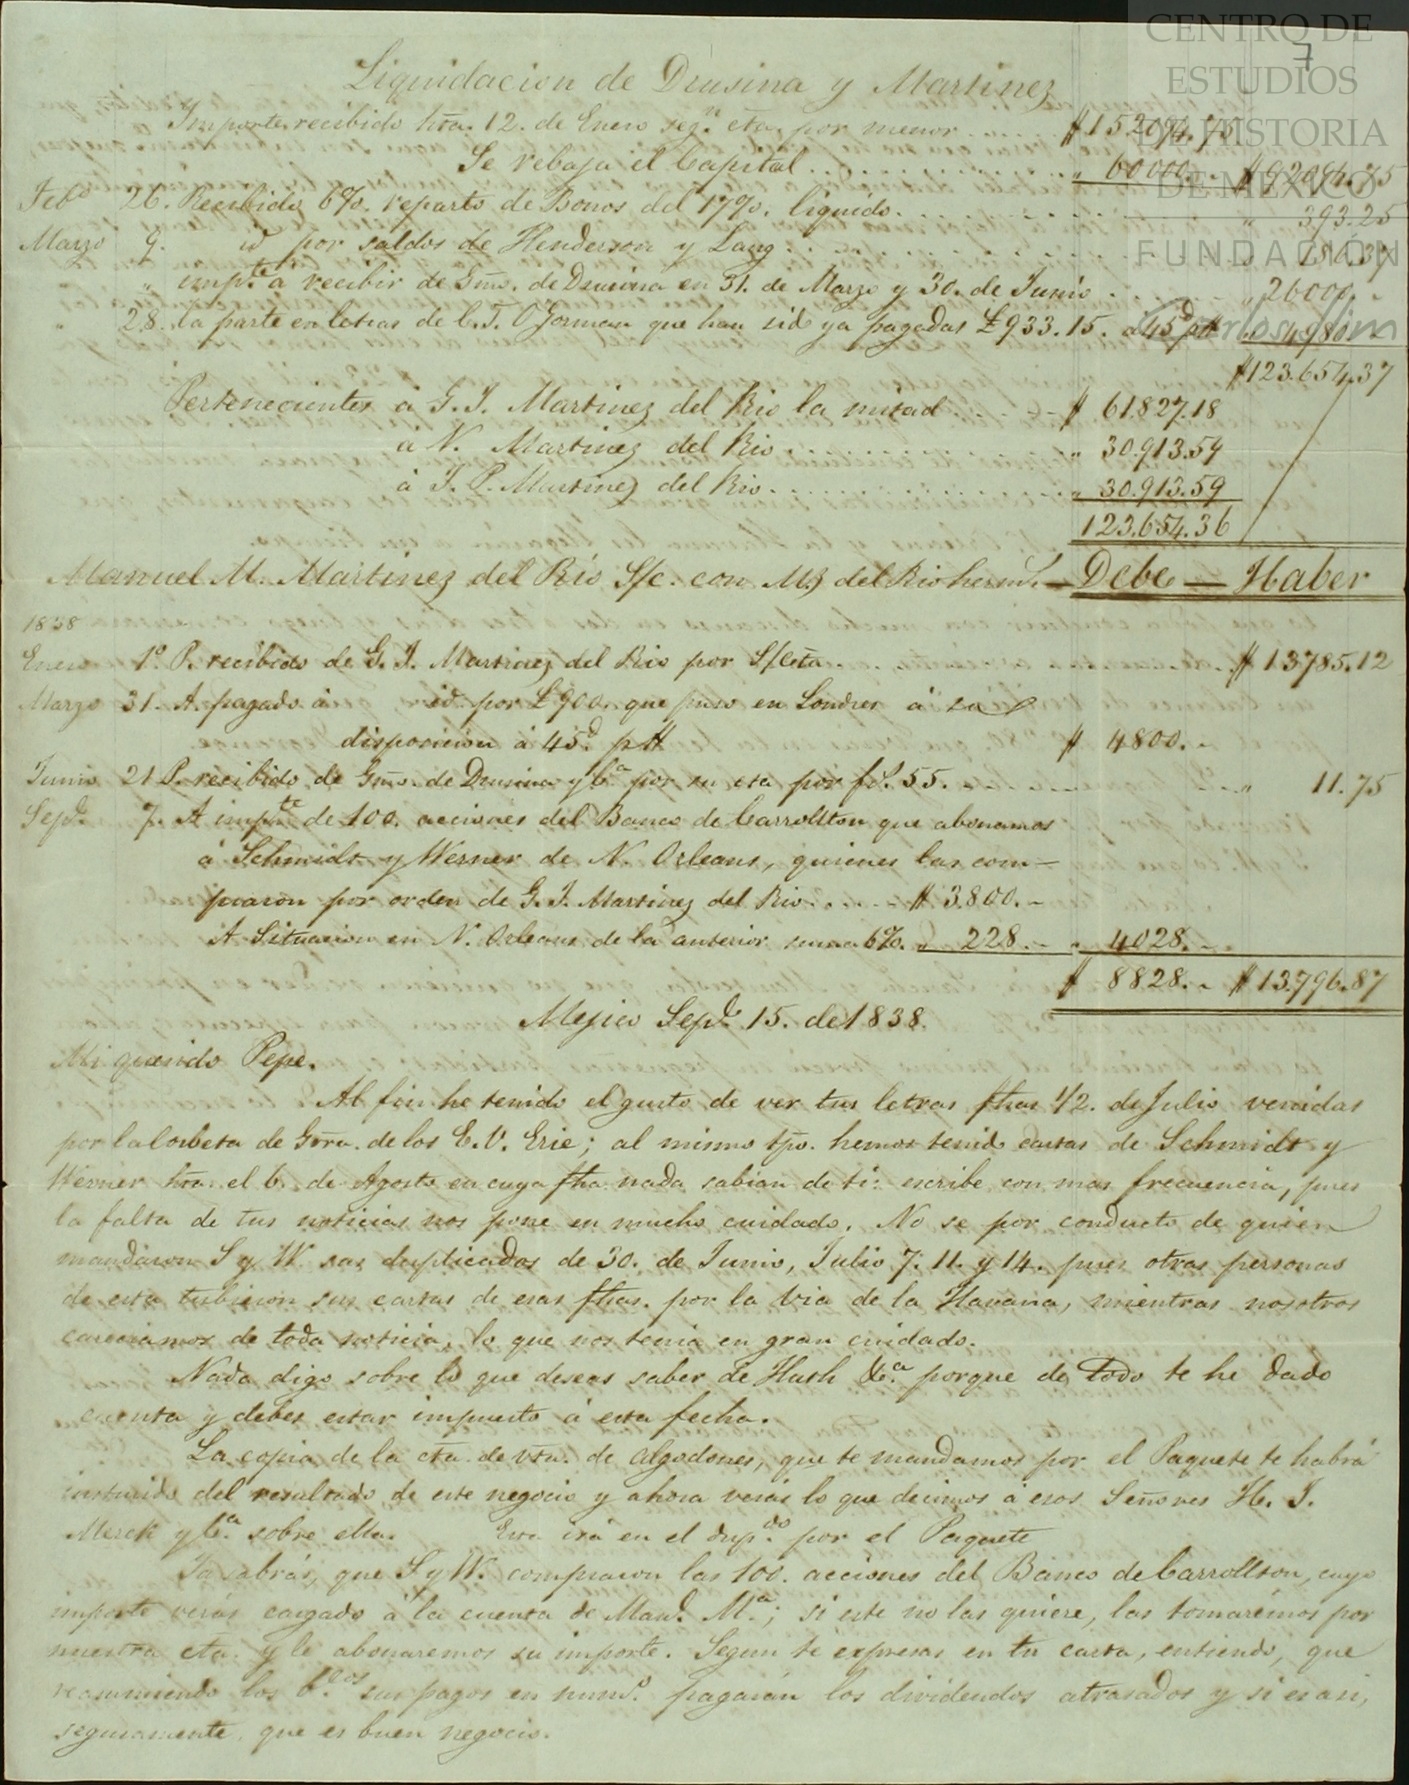 CENTRO DE
ESTUDIOS
DE HISTORIA
DE MEXICO
FUNDACIÓN
Carlos Slim
7
Liquidacion de Drusina y Martinez
Importe recibido hta. 12. de Enero segn. cta. por menor $152094.75
Se rebaja el Capital " 60000.- $92094.75
Febo 26. Recibido 6%. reparto de Bonos del 17%. liquido. " 393.25
Marzo 9. id por saldos de Henderson y Lang
" impte. á recibir de Gmo. de Drusina en 31. de Marzo y 30. de Junio " 26000.-
" 28. la parte en letras de C. T. O'Gorman que han sido ya pagadas £933.15. a 45d p$ " 4980.-
$123.654.37
Pertenecientes á G. J. Martinez del Rio la mitad $ 61.827.18
á N. Martinez del Rio " 30.913.59
á J. P. Martinez del Rio " 30.913.59
123.654.36
Manuel M. Martinez del Rio S/c. con Mz del Rio hermS. — Debe — Haber
1838
Enero 1o P. recibido de G. J. Martinez del Rio por S/Cta. $ 13785.12
Marzo 31. A. pagado á id. por £900. que puso en Londres á su
disposicion á 45d. p$ $ 4800.-
Junio 21 P. recibido de Gmo. de Drusina y Ca. por su cta por fs. 55. " 11.75
Sepe. 7. A impte de 100. acciones del Banco de Carrollton que abonamos
á Schmidt y Werner de N. Orleans, quienes las com-
praron por orden de G. J. Martinez del Rio $ 3.800.-
A Situacion en N. Orleans de la anterior suma 6%. " 228.- " 4028.-
$ 8828.- $13.796.87
Mejico Sepe. 15. de 1838.
Mi querido Pepe.
Al fin he tenido el gusto de ver tus letras fhas 1/2. de Julio venidas
por la Corbeta de Grra. de los E. U. Erie; al mismo tpo. hemos tenido cartas de Schmidt y
Werner hta. el 6. de Agosto en cuya fha nada sabian de ti: escribe con mas frecuencia, pues
la falta de tus noticias nos pone en mucho cuidado. No se por conducto de quien
mandaron S y W. sus duplicados de 30. de Junio, Julio 7. 11. y 14. pues otras personas
de esta tubieron sus cartas de esas fhas. por la via de la Havana, mientras nosotros
careciamos de toda noticia, lo que nos tenia en gran cuidado.
Nada digo sobre lo que deseas saber de Hush &a. porque de todo te he dado
cuenta y debes estar impuesto á esta fecha.
La copia de la cta. de vta. de algodones, que te mandamos por el Paquete te habrá
instruido del resultado de este negocio y ahora verás lo que decimos á esos Señores H. J.
Merck y Ca. sobre ella. Esta irá en el dupdo. por el Paquete
Ya sabrás, que S y W. compraron las 100. acciones del Banco de Carrollton, cuyo
importe verás cargado á la cuenta de Manl. Ma.; si este no las quiere, las tomarémos por
nuestra cta. y le abonaremos su importe. Segun te expresas en tu carta, entiendo, que
reasumiendo los Bcos sus pagos en numo. pagarán los dividendos atrasados y si es asi,
seguramente, que es buen negocio.